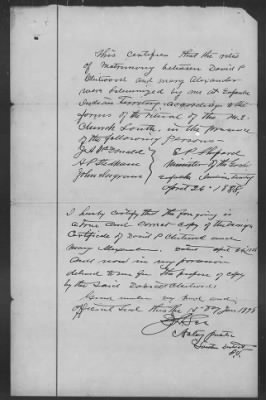 This certifies that the rites
of Matrimony between David P
and Mary Alexander
were solemnized by me at Eufaula
Indian Territory according to the
forms of the ritual of the M.E.
Church South, in the presence
of the following Persons -
Minister of the Gospel
Eufaula Indian Territory
April 26 - 1885
I hereby certify that the foregoing is
a true and correct copy of the marriage
Certificate of David P and
Mary Alexander dated April 26 1885
and now in my possession
delivered to me for the purpose of copy
by the Said David
Given under my hand and
official Seal this the day Jan 1898
Notary Public